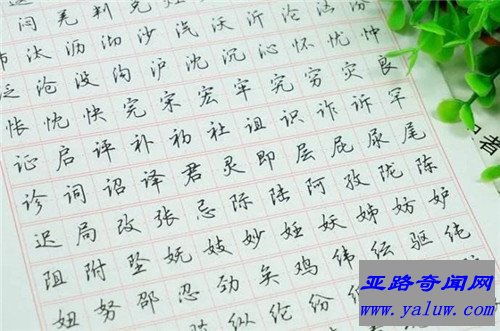 羌 判 兑 灶
汰 沥 沏 沙 汽 沃 沂 沦 汹 汾
泛 沧 没 沟 沪 沈 沉 沁 怀 忧 忡
怅 忱 快 完 宋 宏 牢 究 穷 灾 良
证 启 评 补 初 社 诅 识 诈 诉 罕
诊 词 诏 译 君 灵 即 层 屁 尿 尾
迟 局 改 张 忌 际 陆 阿 孜 陇 陈
阻 附 坠 妩 妓 妙 妊 妖 姊 妨 妒
妞 努 邵 忍 劲 矣 鸡 纬 纭 驱 纯
纵 纶 纷
者
亚路奇闻网
www.yaluw.com